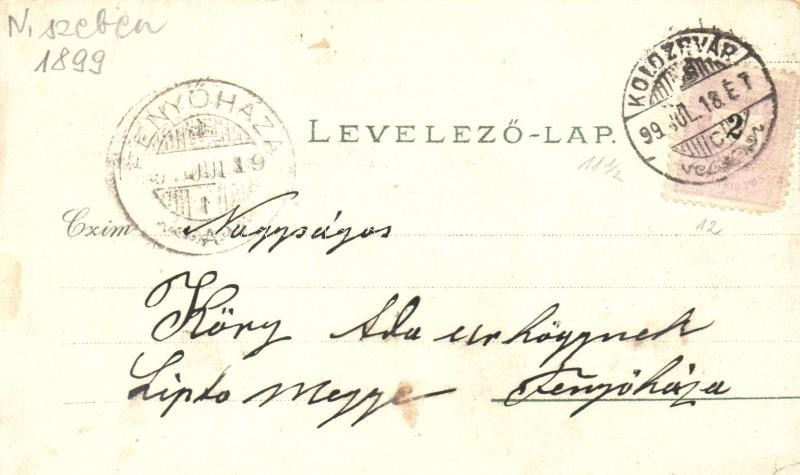 N. szeben
1899
FENYŐHÁZA
JUL 19
LEVELEZŐ-LAP.
KOLOZSVÁR
99 JUL. 18. ÉT
2
11 1/2
12
Czim Nagyságos
Kóry Ada urhőgynek
Lipto Megye Fenyőháza